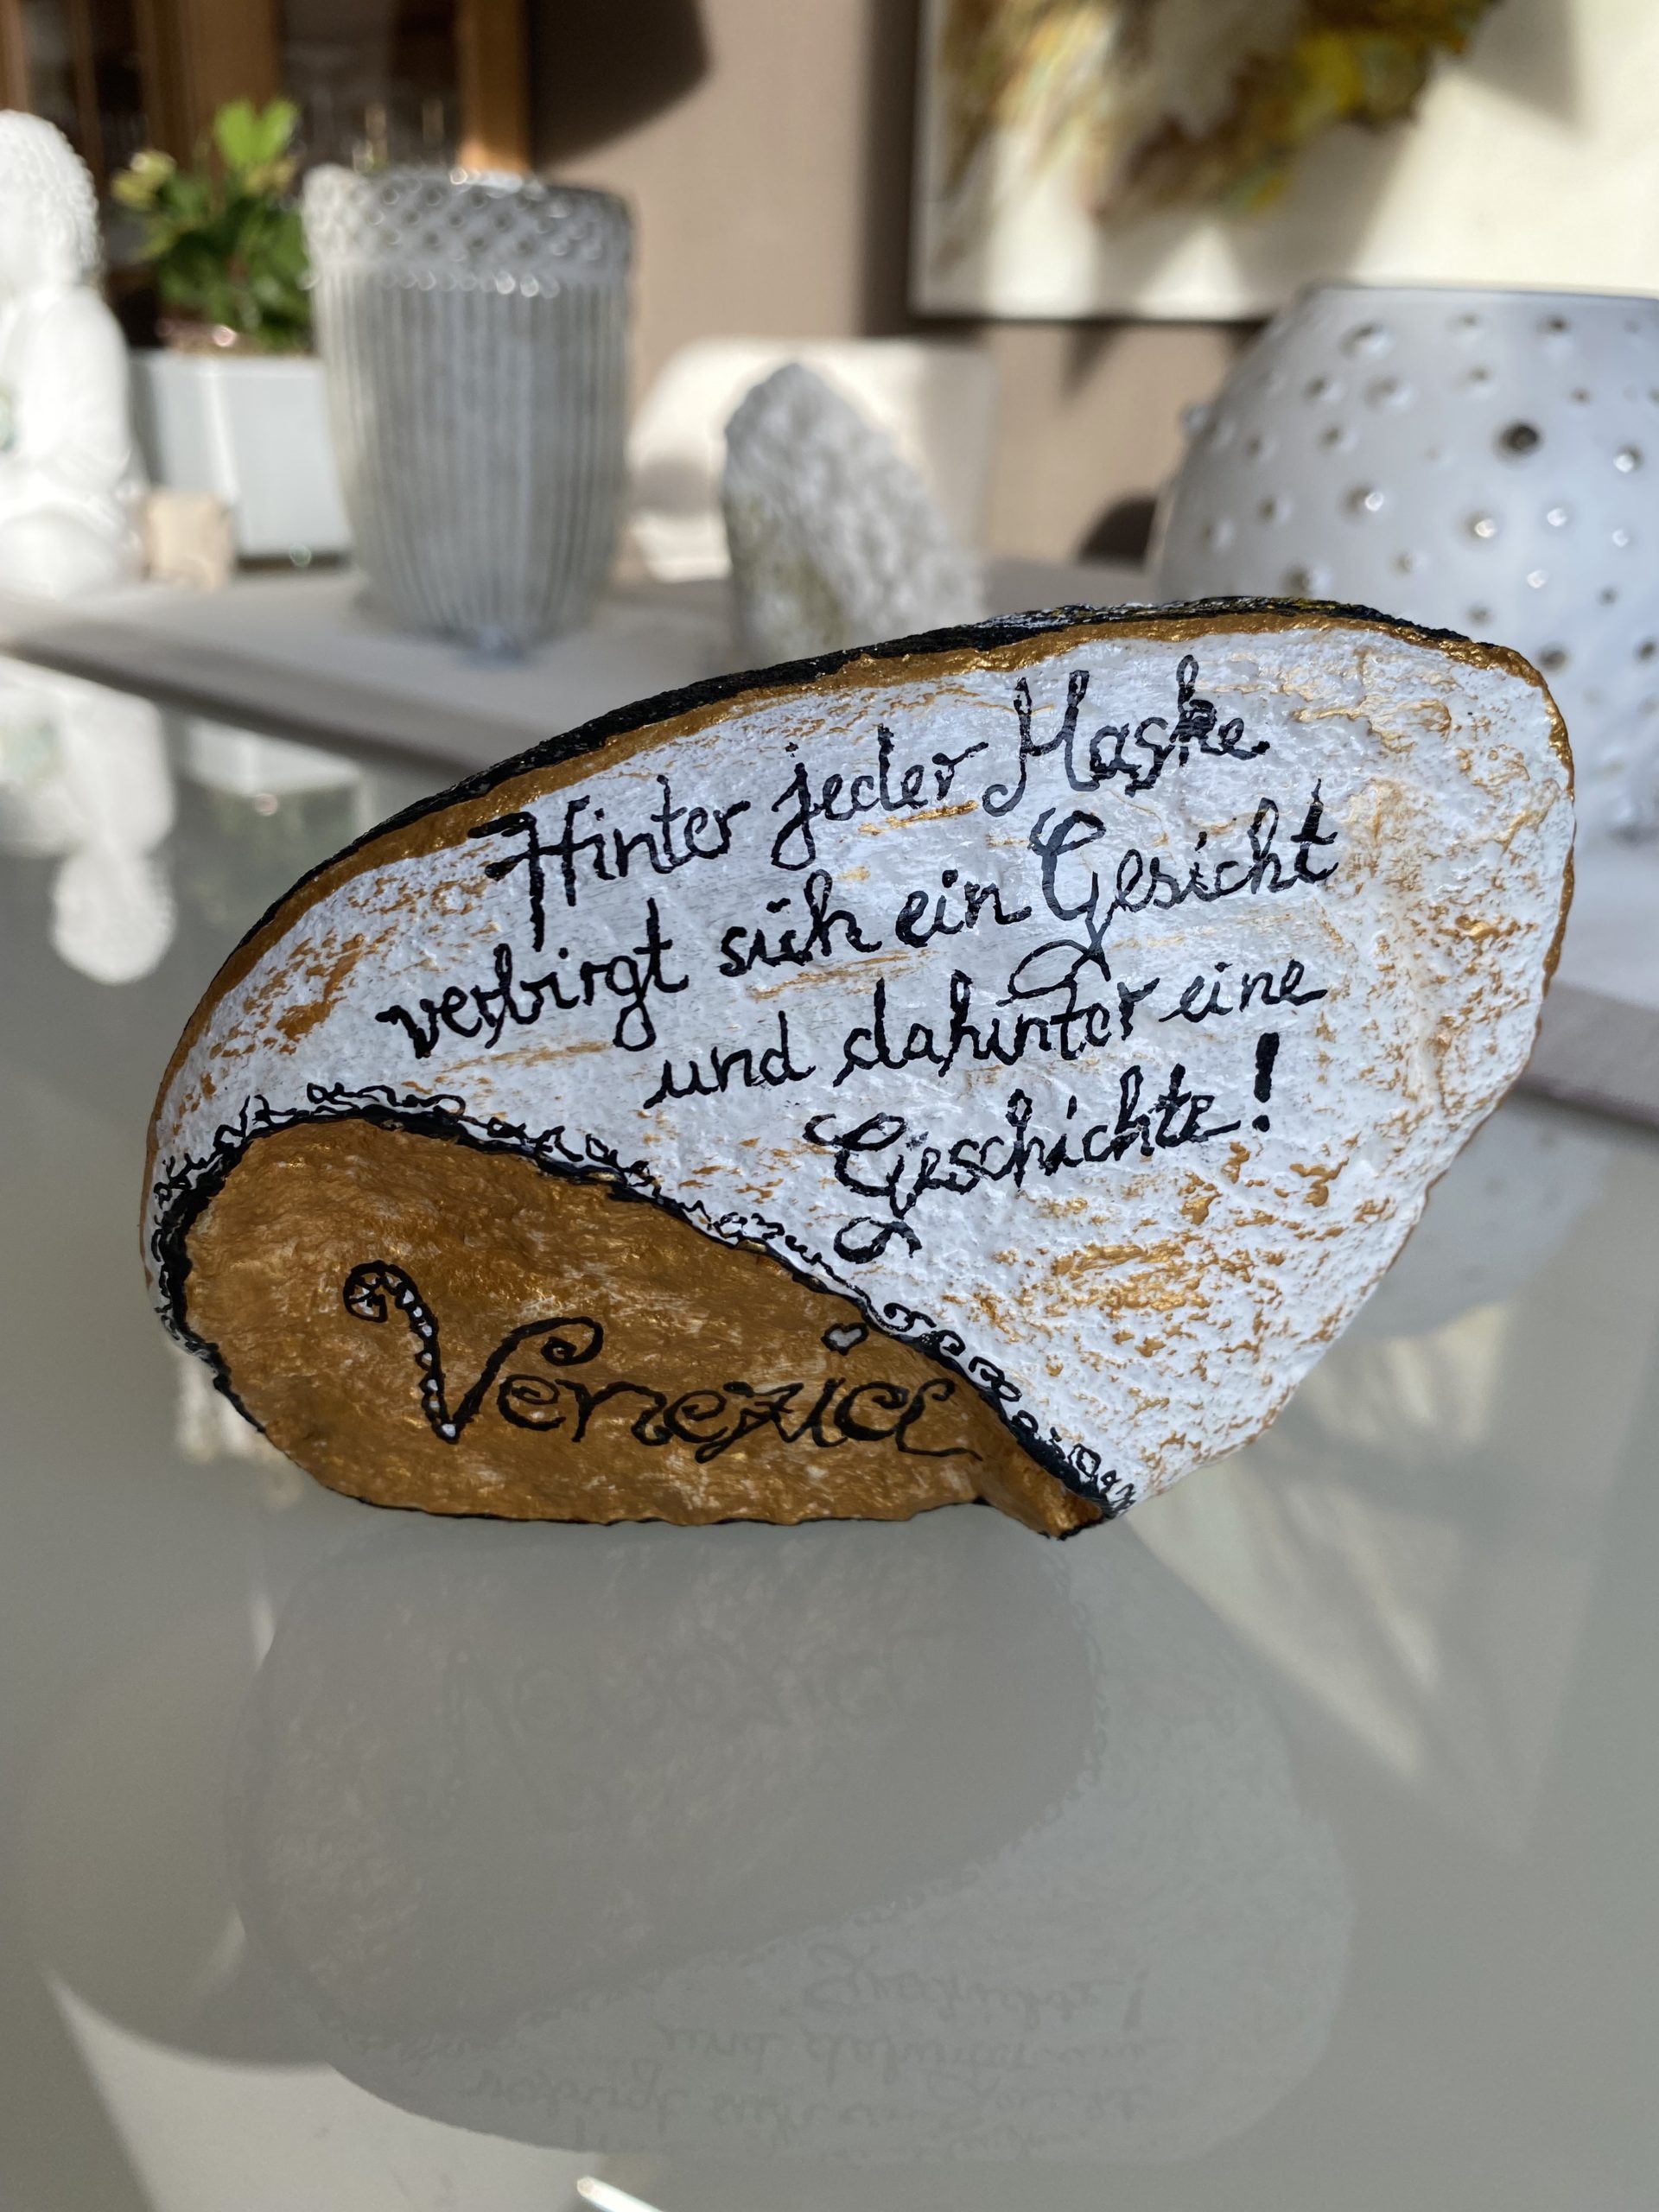 Hinter jeder Maske
verbirgt sich ein Gesicht
und dahinter eine
Geschichte!
Venezia